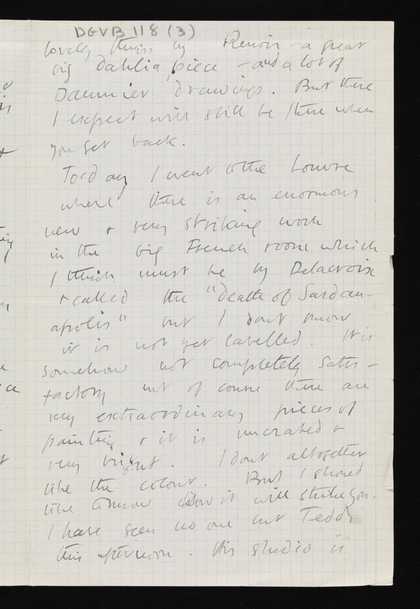 DGVB 118 (3)
lovely things by Renoir - a great
big dahlia piece - and a lot of
Daumier drawings. But these
I expect will still be there when
you get back.
Today I went to the Louvre
where there is an enormous
new & very striking work
in the big French room which
I think must be by Delacroix
& called the "death of Sardan-
apolis" but I dont know
it is not yet labelled. It is
somehow not completely satis-
factory but of course there are
very extraordinary pieces of
painting & it is uncrated &
very bright. I dont altogether
like the colour. But I should
like to know how it will strike you.
I have seen no one but Teddy
this afternoon. His studio is